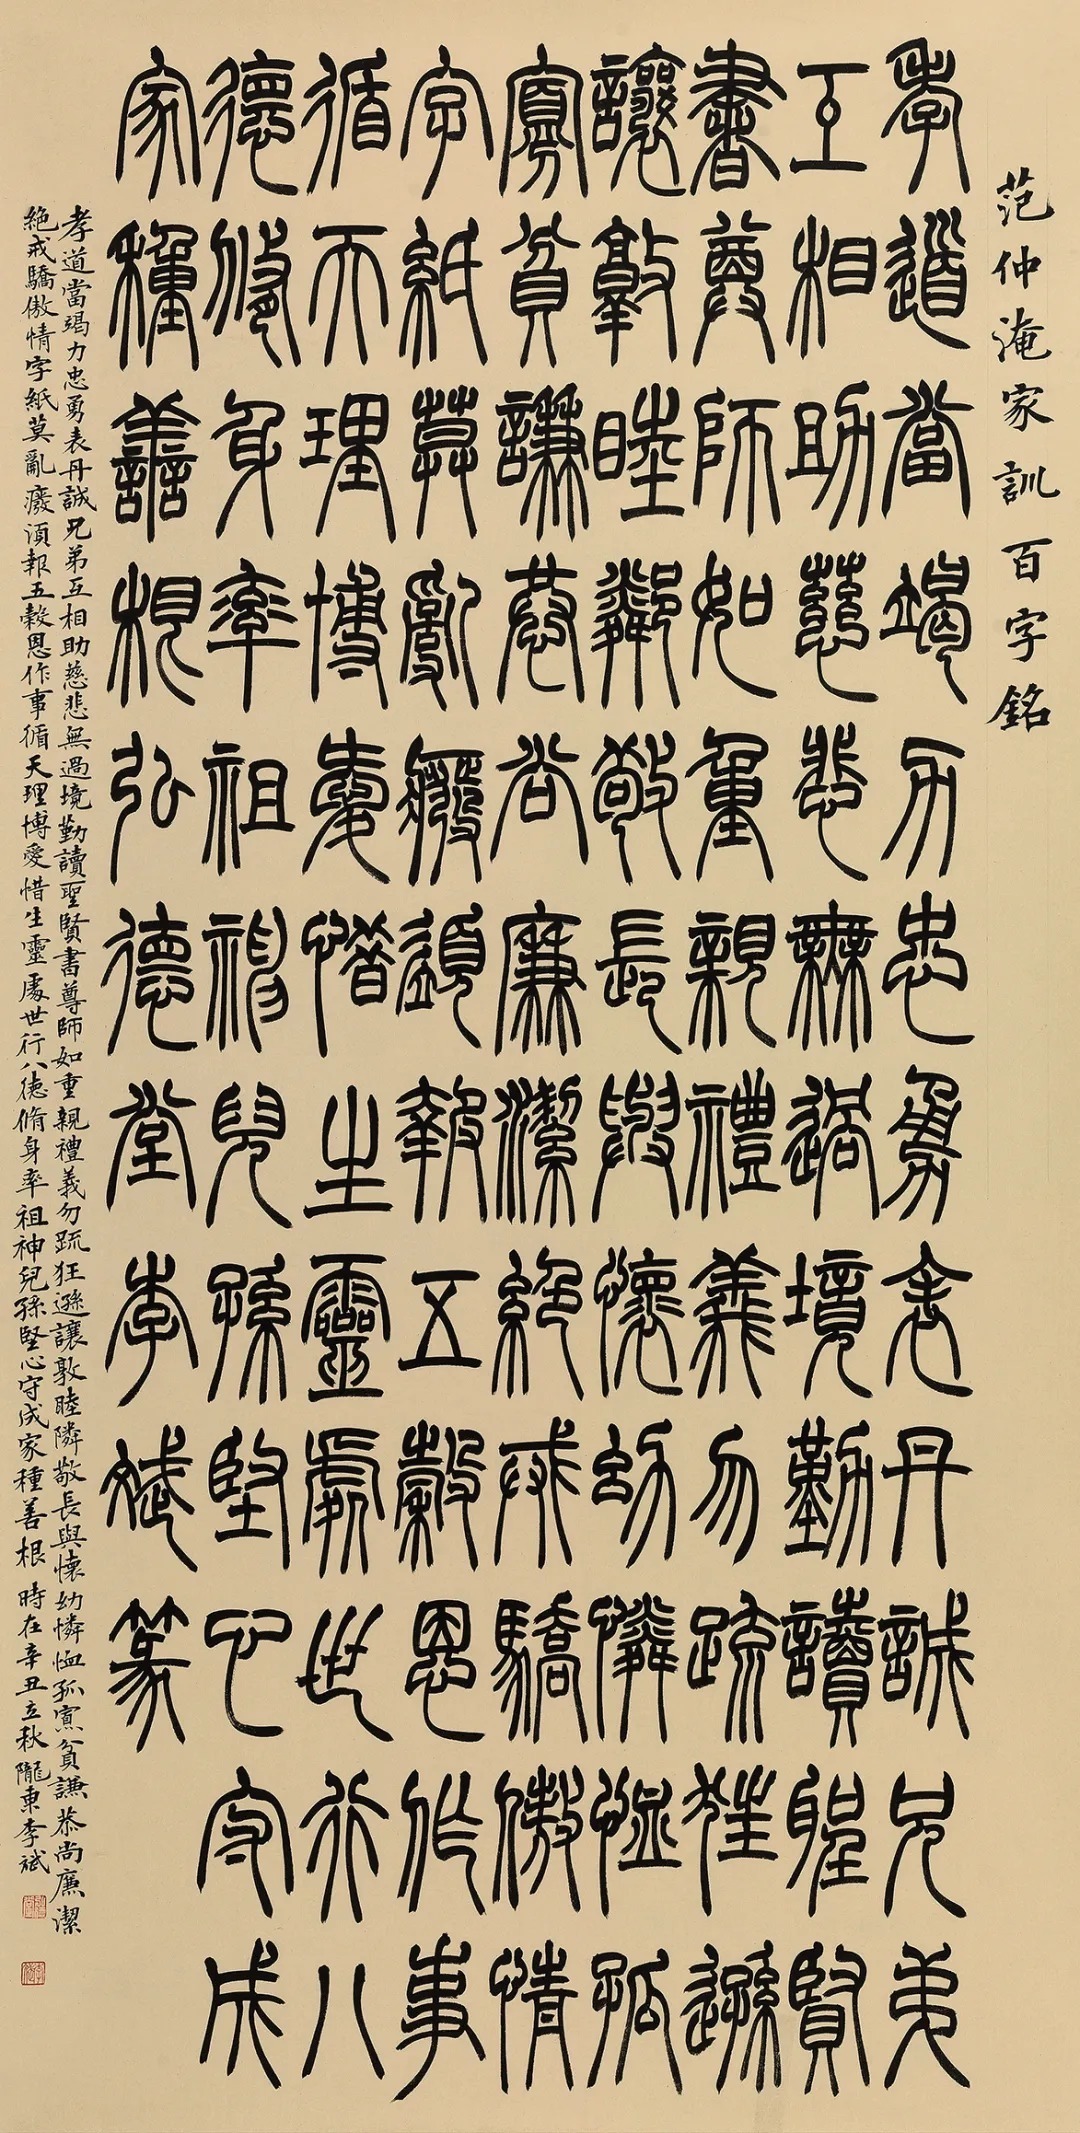 范仲淹家訓百字銘
孝道當竭力忠勇表丹誠兄弟
互相助慈悲無過境勤讀聖賢
書尊師如重親禮義勿疏狂遜
讓敦睦鄰敬長與懷幼憐恤孤
寡貧謙恭尚廉潔絕戒驕傲情
字紙莫亂廢須報五穀恩作事
循天理博愛惜生靈處世行八
德修身率祖神兒孫堅心守成
家種善根弘德堂李斌篆
孝道當竭力忠勇表丹誠兄弟互相助慈悲無過境勤讀聖賢書尊師如重親禮義勿疏狂遜讓敦睦隣敬長與懷幼憐恤孤寡貧謙恭尚廉潔
絕戒驕傲情字紙莫亂廢須報五穀恩作事循天理博愛惜生靈處世行八德脩身率祖神兒孫堅心守成家種善根 時在辛丑立秋隴東李斌